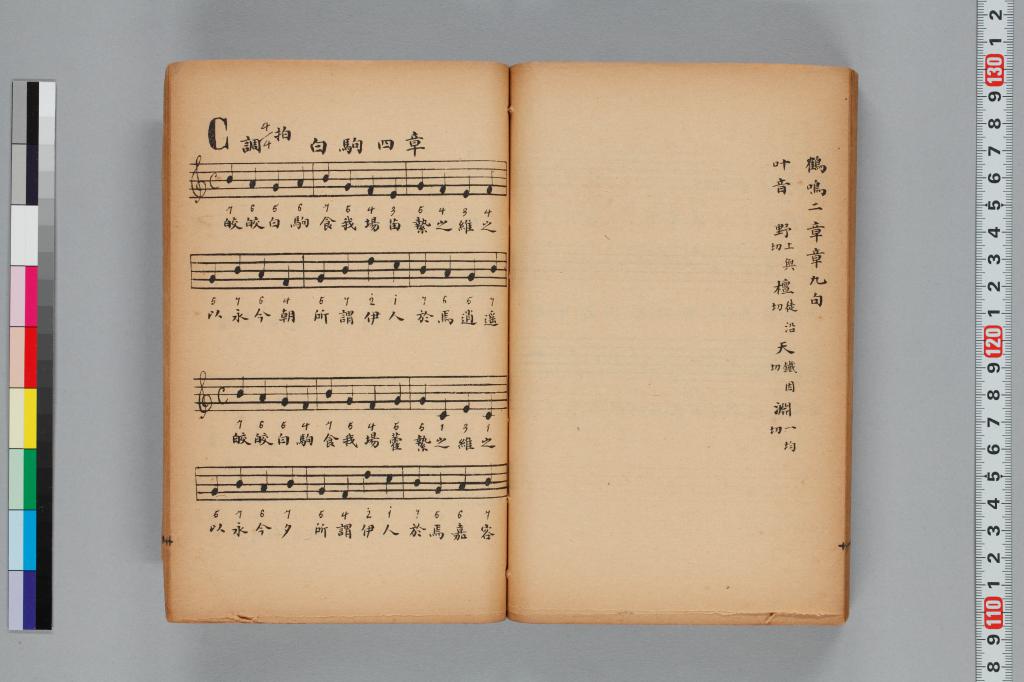 C調 4/4拍 白駒四章
7 6 5 6 7 5 4 3 5 4 3 4
皎皎白駒食我場苗縶之維之
5 7 6 4 5 7 2 1 7 6 5 7
以永今朝所謂伊人於焉逍遙
7 6 5 4 7 5 4 5 5 1 3 1
皎皎白駒食我場藿縶之維之
5 7 6 7 5 4 2 1 7 5 6 7
以永今夕所謂伊人於焉嘉客
鶴鳴二章章九句
叶音 野上與切 檀徒沿切 天鐵因切 淵一均切
8 9 110 1 2 3 4 5 6 7 8 9 120 1 2 3 4 5 6 7 8 9 130 1 2